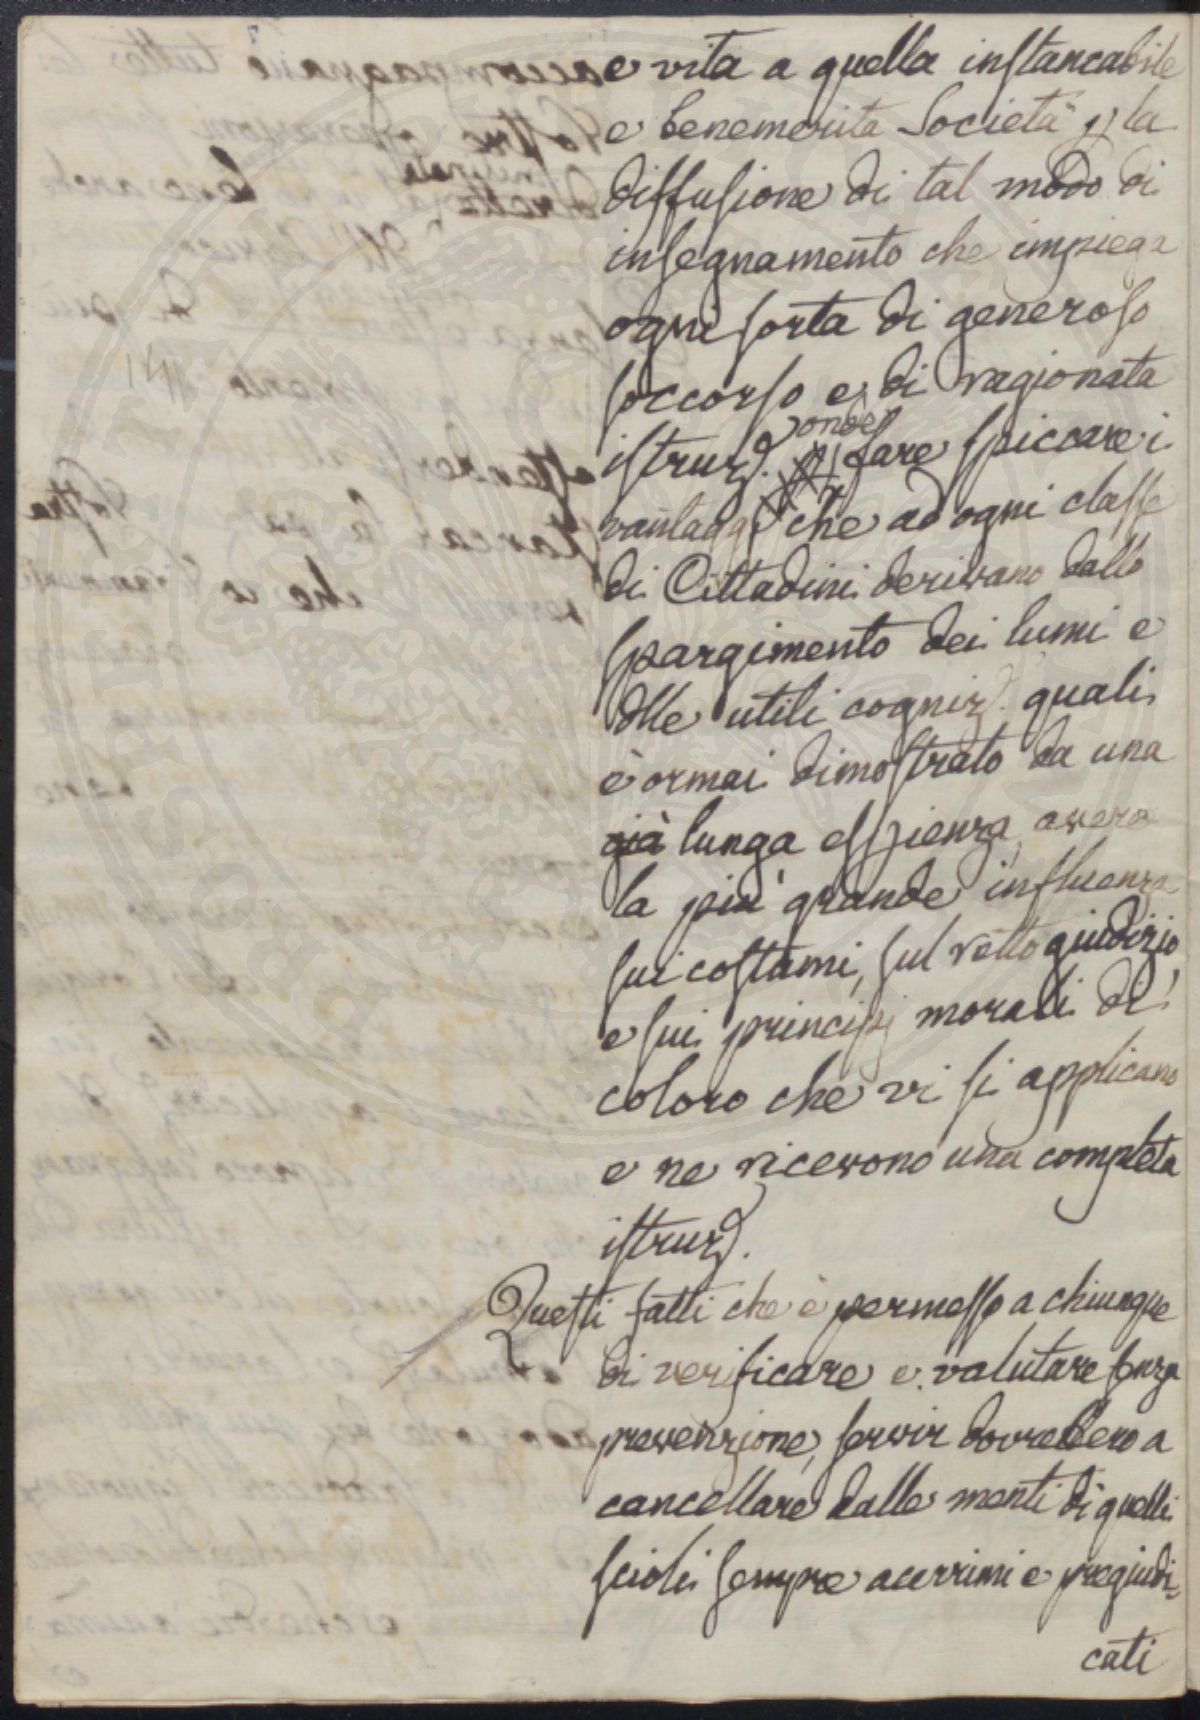 e vita a quella instancabile
e benemerita Società p la
diffusione di tal modo di
insegnamento che impiega
ogni sorta di generoso
soccorso e di ragionata
istruz. onde fare spiccare i
vantaggi che ad ogni classe
di Cittadini derivano dallo
spargimento dei lumi e
dlle utili cogniz. quali
è ormai dimostrato da una
già lunga espienza avere
la più grande influenza
sui costumi, sul retto giudizio
e sui principj morali di
coloro che vi si applicano
e ne ricevono una completa
istruz.
Questi fatti che è permesso a chiunque
di verificare e valutare senza
prevenzione, servir dovrebbero a
cancellare dalle menti di quelli
scioli sempre acerrimi e pregiudi=
cati